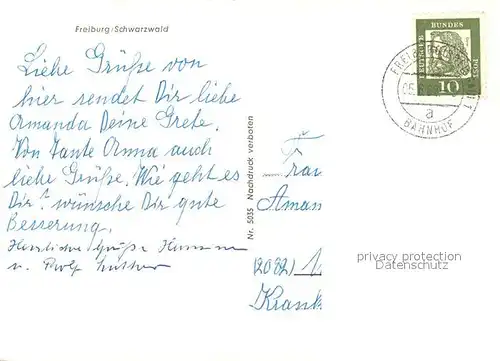 Freiburg/Schwarzwald
Liebe Grüße von
hier sendet Dir liebe
Amanda Deine Grete.
Von Tante Anna auch
liebe Grüße. Wie geht es
Dir? wünsche Dir gute
Besserung.
Herzliche Grüße Hermann
u. Rolf
Nr. 5035 Nachdruck verboten
DEUTSCHE
BUNDES
POST
10
FREIBURG
a
BAHNHOF
Frau
Aman
(2082)
Krank
privacy protection
Datenschutz